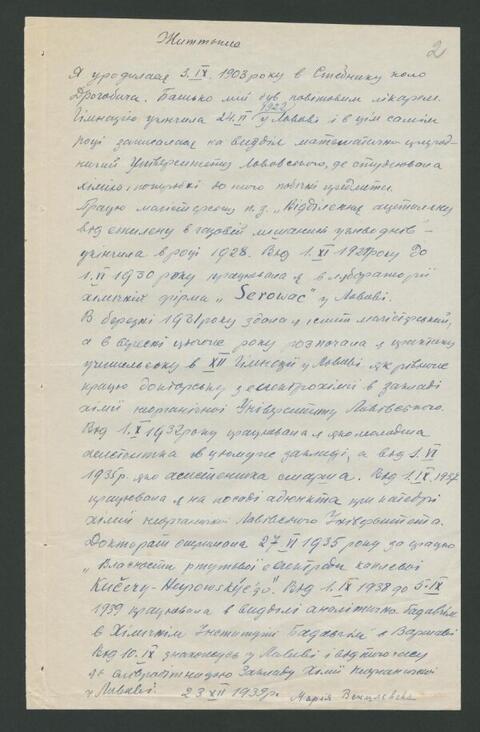 Життєпис
2
Я уродилася 3.IX.1903 року в Стебнику коло
Дрогобича. Батько мій був повітовим лікарем.
Гімназію укінчила 24.VI 1922 у Львові і в цім самім
році записалася на виділ математично-природ-
ничий Університету Львовського, де студіювала
хімію, і потрібні до него побічні предмети.
Працю магістерську п.з. „Відділення ацетилену
від етилену в газовій мішанині углеводнів" –
укінчила в році 1928. Від 1.XI 1928 року до
1.VI 1930 року працювала я в лабораторії
хімічній фірма „Serowac" у Львові.
В березні 1931 року здала я іспит магістерський,
а в вересні цього року розпочала я практику
учительську в XII Гімназії у Львові як рівнож
працю докторську з електрохімії в закладі
хімії неорганічної Університету Львовского.
Від 1.X 1932 року працювала я яко молодша
асистентка в цьому закладі, а від 1.VI
1935 р. яко асистентка старша. Від 1.IX.1937
працювала я на посаді адюнкта при катедрі
хімії неорганічної Львівского Університета.
Докторат отримала 27 VI 1935 року за працю
„Власности ртутової електроди каплевої
Кučery-Heyrowský'єго". Від 1.IX 1938 до 5.IX
1939 працювала в виділі аналітичнім
в Хімічнім Институті в Варшаві
Від 10.IX знаходжусь у Львові і від того часу
Закладу Хімії Неорганічної
у Львові. 23 XII 1939 р. Марія